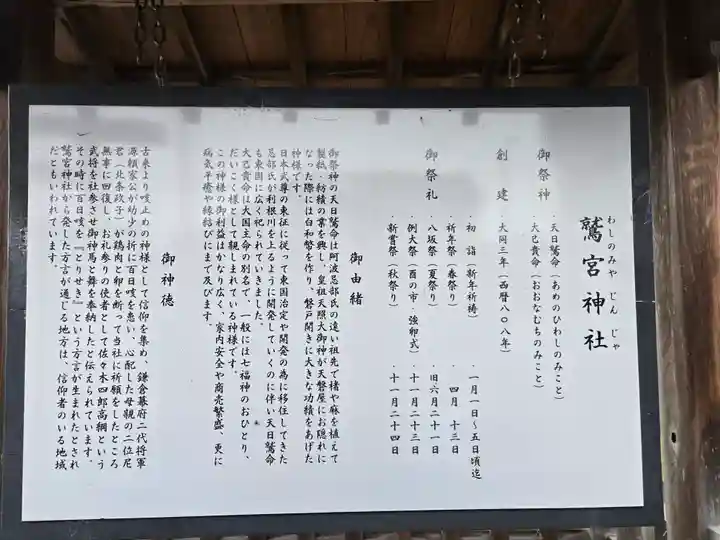 わしのみや じん じゃ
鷲宮神社
御祭神
・天日鷲命（あめのひわしのみこと）
・大己貴命（おおなむちのみこと）
創建
・大同三年（西暦八〇八年）
御祭礼
・初詣（新年祈祷）・一月一日〜五日頃迄
・祈年祭（春祭り）・四月 十三日
・八坂祭（夏祭り）・旧六月二十一日
・例大祭（酉の市・強卯式）・十一月二十三日
・新嘗祭（秋祭り）・十一月二十四日
御由緒
御祭神の天日鷲命は阿波忌部氏の遠い祖先で楮や麻を植えて
製紙・紡績の業を興し、皇祖天照大御神が天磐屋にお隠れに
なった際には白和幣を作り、磐戸開きに大きな功績をあげた
神様です。
日本武尊の東征に従って東国治定や開発の為に移住してきた
忌部氏が利根川を上るように開発していくのに伴い天日鷲命
も東国に広く祀られていきました。
大己貴命は大国主命の別名で、一般には七福神のおひとり、
だいこく様として親しまれている神様です。
この神様の御利益はかなり広く、家内安全や商売繁盛、更に
病気平癒や縁結びにまで及びます。
御神徳
古来より咳止めの神様として信仰を集め、鎌倉幕府二代将軍
源頼家公が幼少の折に百日咳を患い、心配した母親の二位尼
君（北条政子）が鶏肉と卵を断って当社に祈願をしたところ
無事に回復し、お礼参りの使者として佐々木四郎高綱という
武将を社参させ御神馬と舞を奉納したと伝えられています。
その時に百日咳を『とりせき』という方言が生まれたとされ
鷲宮神社から発した方言が通じる地方は、信仰者のいる地域
だともいわれています。